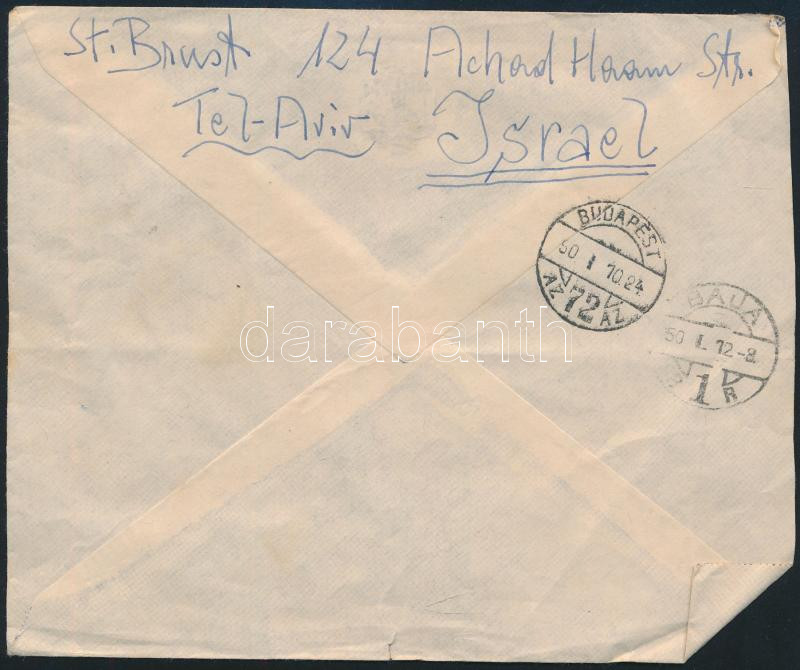 St. Brust 124 Achad Haam Str.
Tel-Aviv Israel
BUDAPEST
50. I 10.24
72
AZ
BAJA
50 I. 12-8
1 R
darabanth